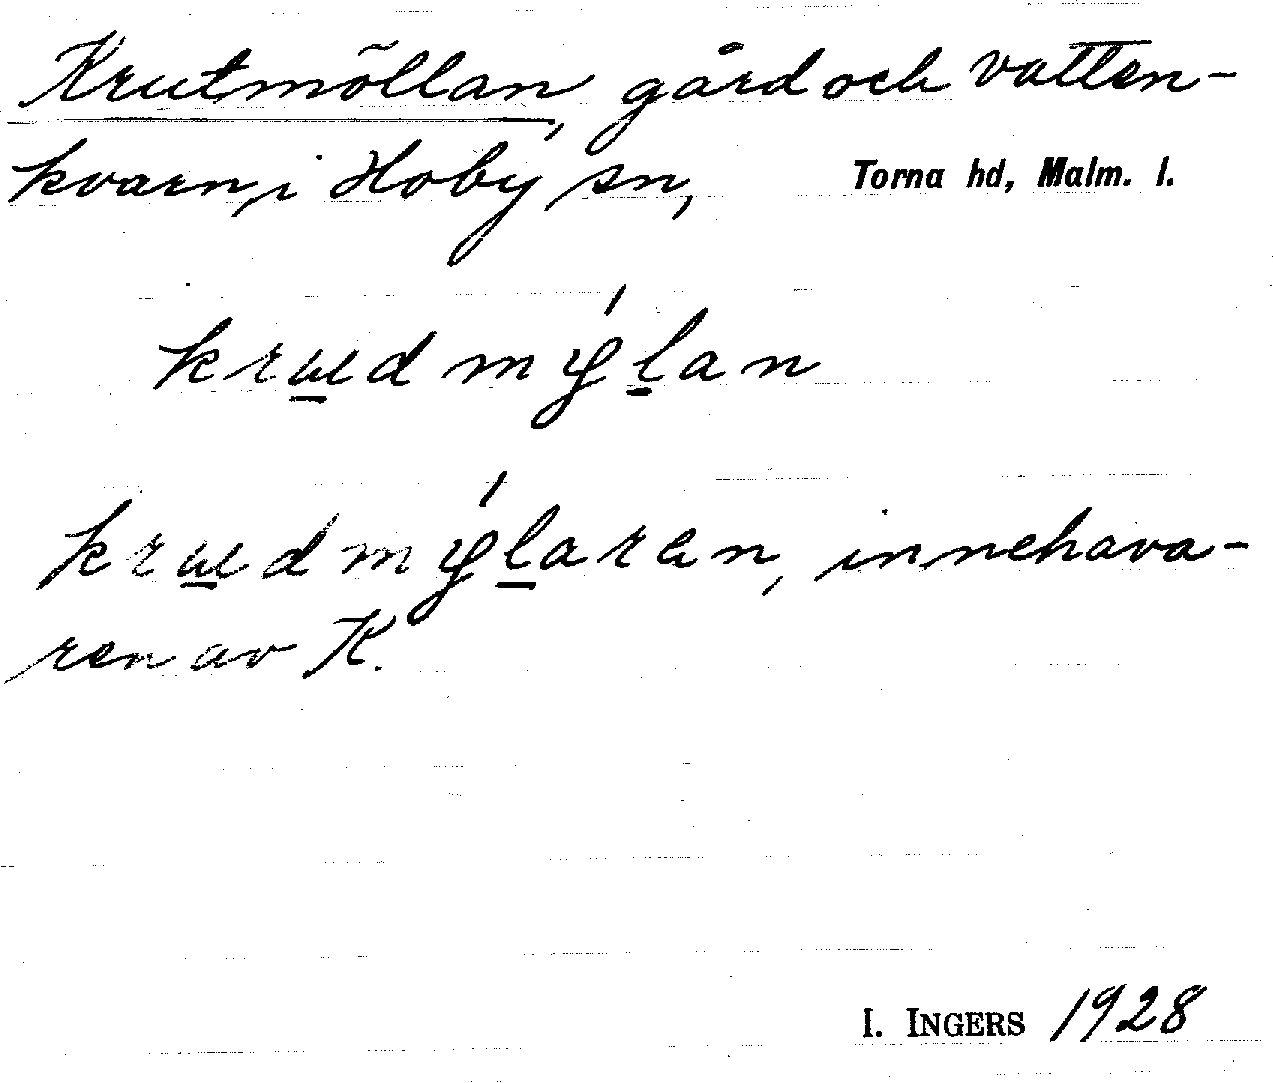 Krutmöllan, gård och vatten-
kvarn, i Hoby sn, Torna hd, Malm. l.
krud mýlan
krud mýlaren, innehava-
ren av K.
I. INGERS 1928